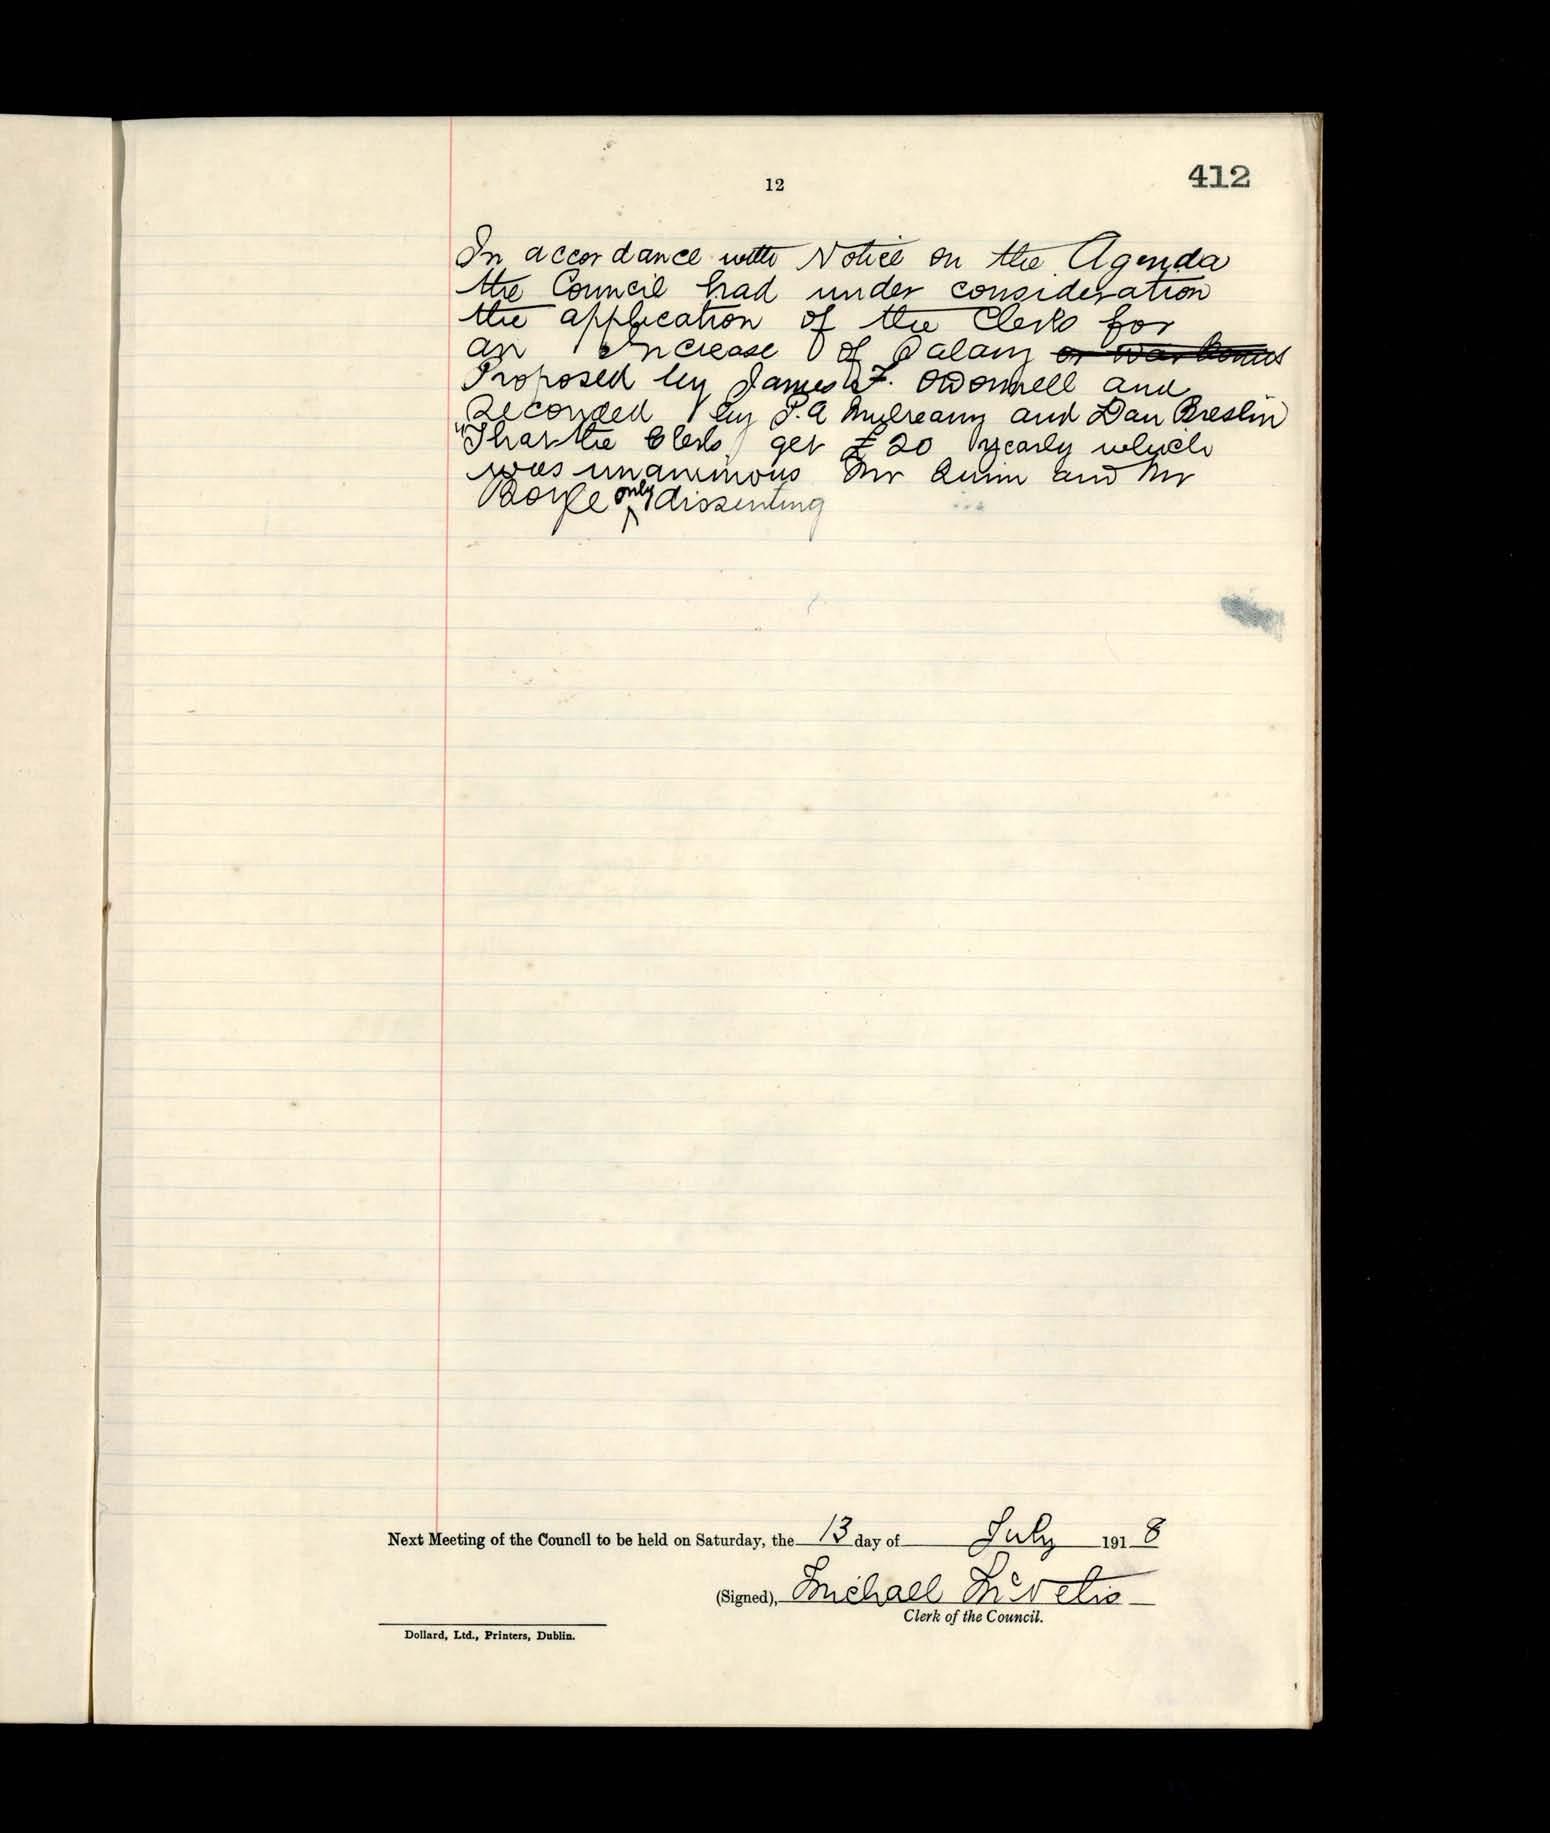 12
412
In accordance with Notice on the Agenda
the Council had under consideration
the application of the Clerk for
an Increase of Salary or War Bonus
Proposed by James F. O'Donnell and
Seconded by P.A Mulreany and Dan Breslin
"That the Clerk get £20 yearly which
was unanimous Mr Quinn and Mr
Boyle only dissenting
Next Meeting of the Council to be held on Saturday, the 13 day of July 1918
(Signed), Michael
Clerk of the Council.
Dollard, Ltd., Printers, Dublin.